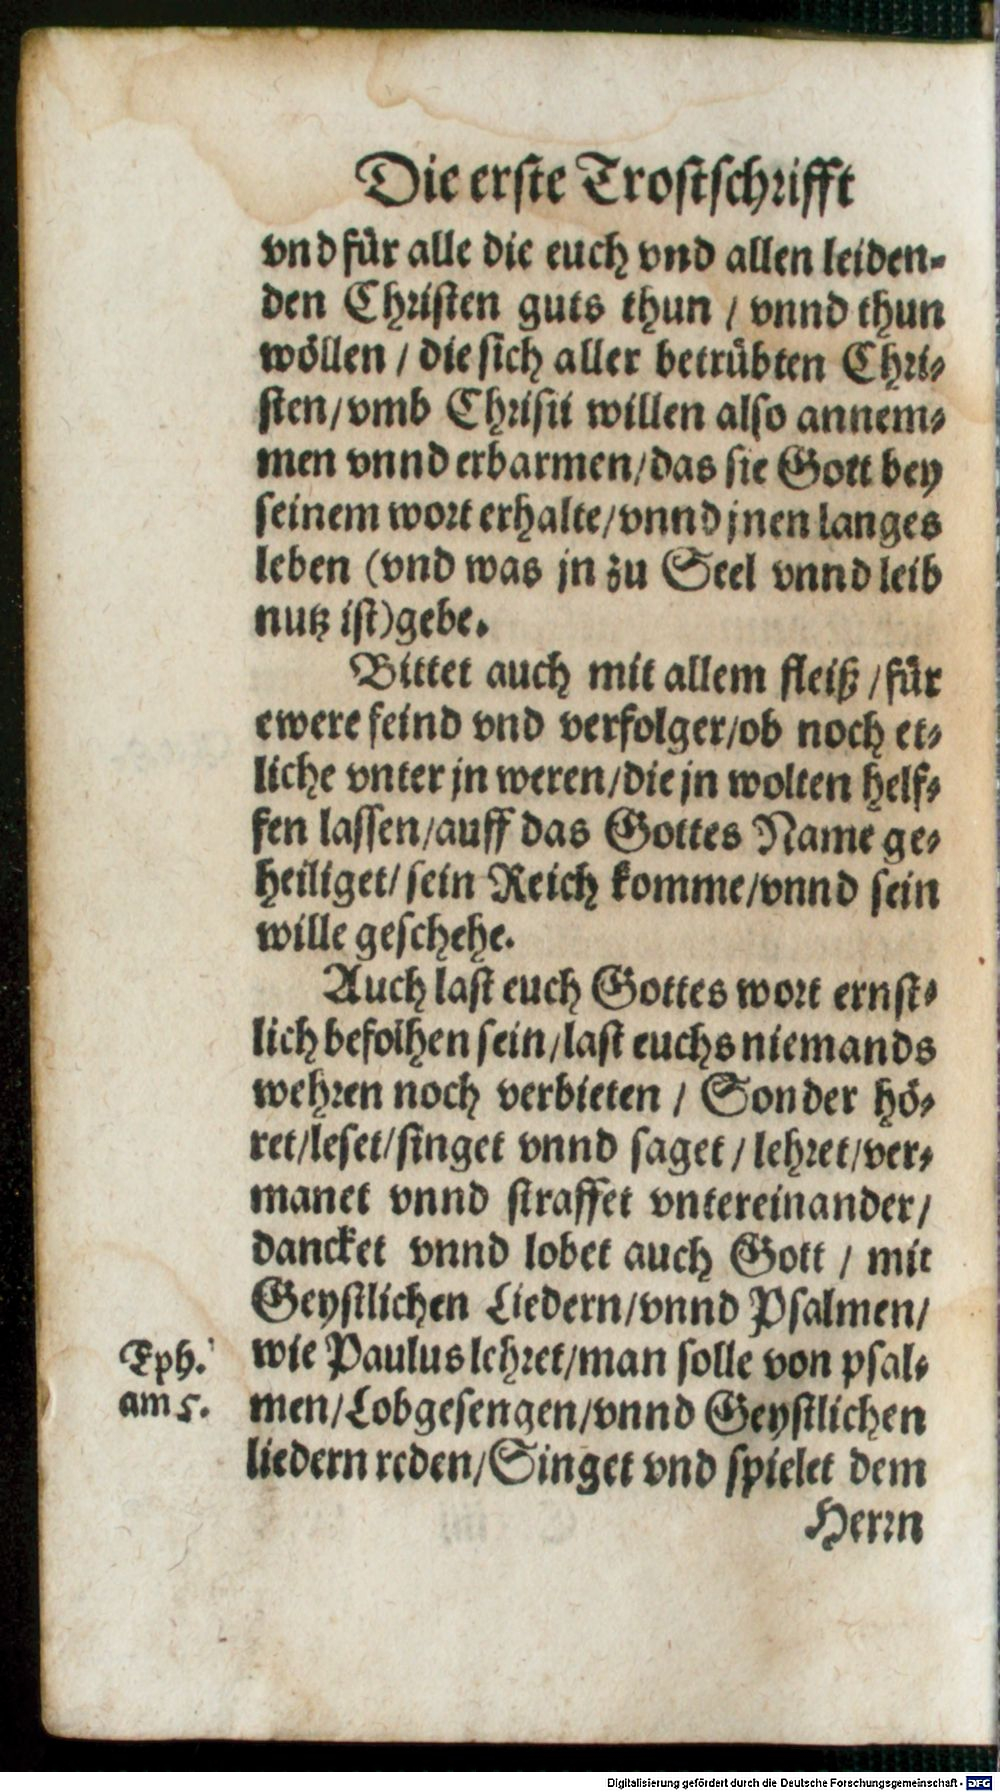 Die erste Trostschrifft
vnd für alle die euch vnd allen leiden-
den Christen guts thun / vnnd thun
wöllen / die sich aller betrübten Chri-
sten/vmb Christi willen also annem-
men vnnd erbarmen/das sie Gott bey
seinem wort erhalte/vnnd jnen langes
leben (vnd was jn zu Seel vnnd leib
nutz ist)gebe.
Bittet auch mit allem fleiß /für
ewere feind vnd verfolger/ob noch et-
liche vnter jn weren/die jn wolten helf-
fen lassen/auff das Gottes Name ge-
heiliget/ sein Reich komme/vnnd sein
wille geschehe.
Auch last euch Gottes wort ernst-
lich befolhen sein/last euchs niemands
wehren noch verbieten / Sonder hö-
ret/leset/singet vnnd saget / lehret/ver-
manet vnnd straffet vntereinander/
dancket vnnd lobet auch Gott / mit
Geystlichen Liedern/vnnd Psalmen/
Eph. am 5.
wie Paulus lehret/man solle von psal-
men/Lobgesengen/vnnd Geystlichen
liedern reden/Singet vnd spielet dem
Herrn
Digitalisierung gefördert durch die Deutsche Forschungsgemeinschaft - DFG